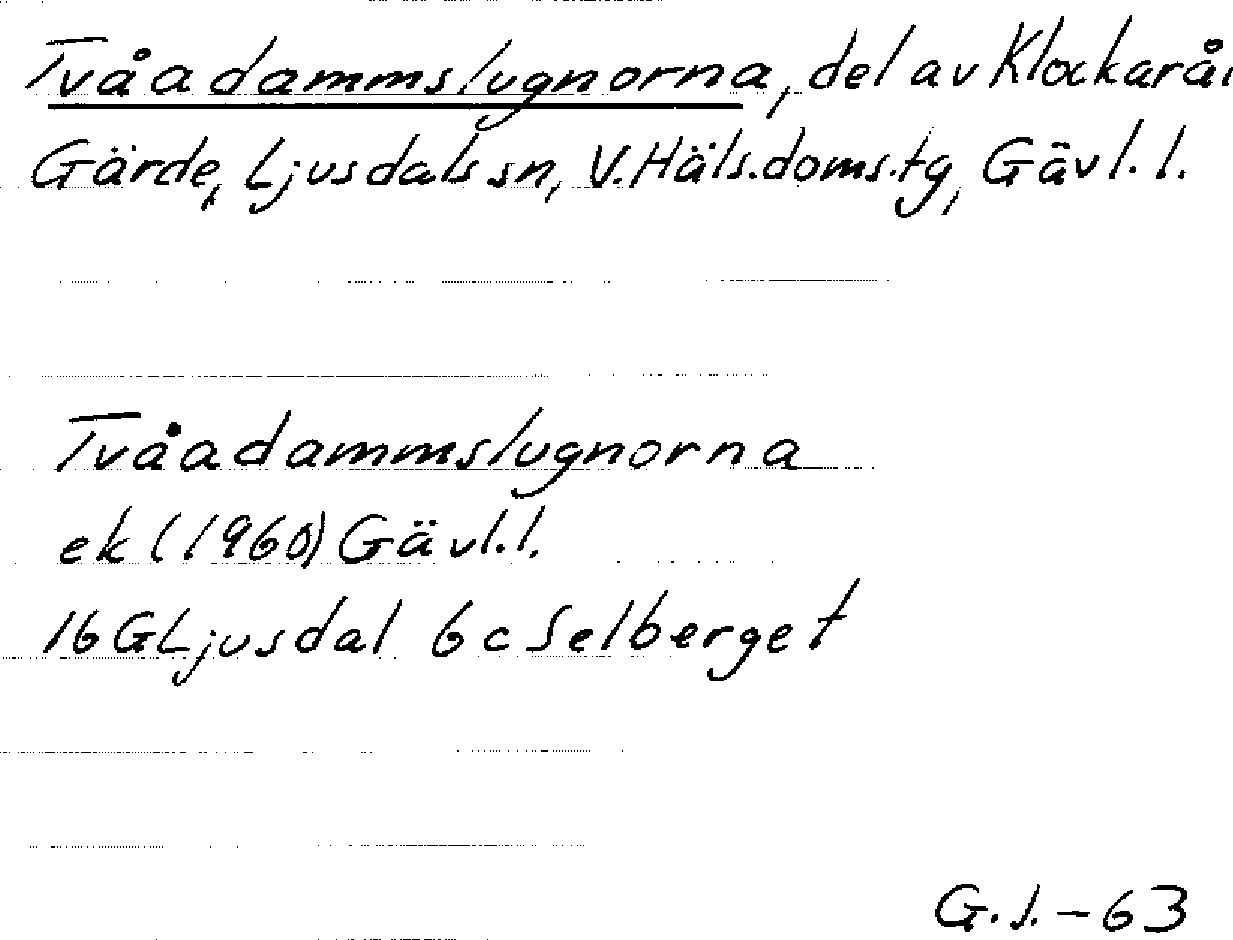 Tvåadammslugnorna, del av Klockarån
Gärde, Ljusdals sn, V. Häls. doms. tg, Gävl. l.
Tvåadammslugnorna
ek (1960) Gävl. l.
16G Ljusdal 6c Selberget
G.S. - 63